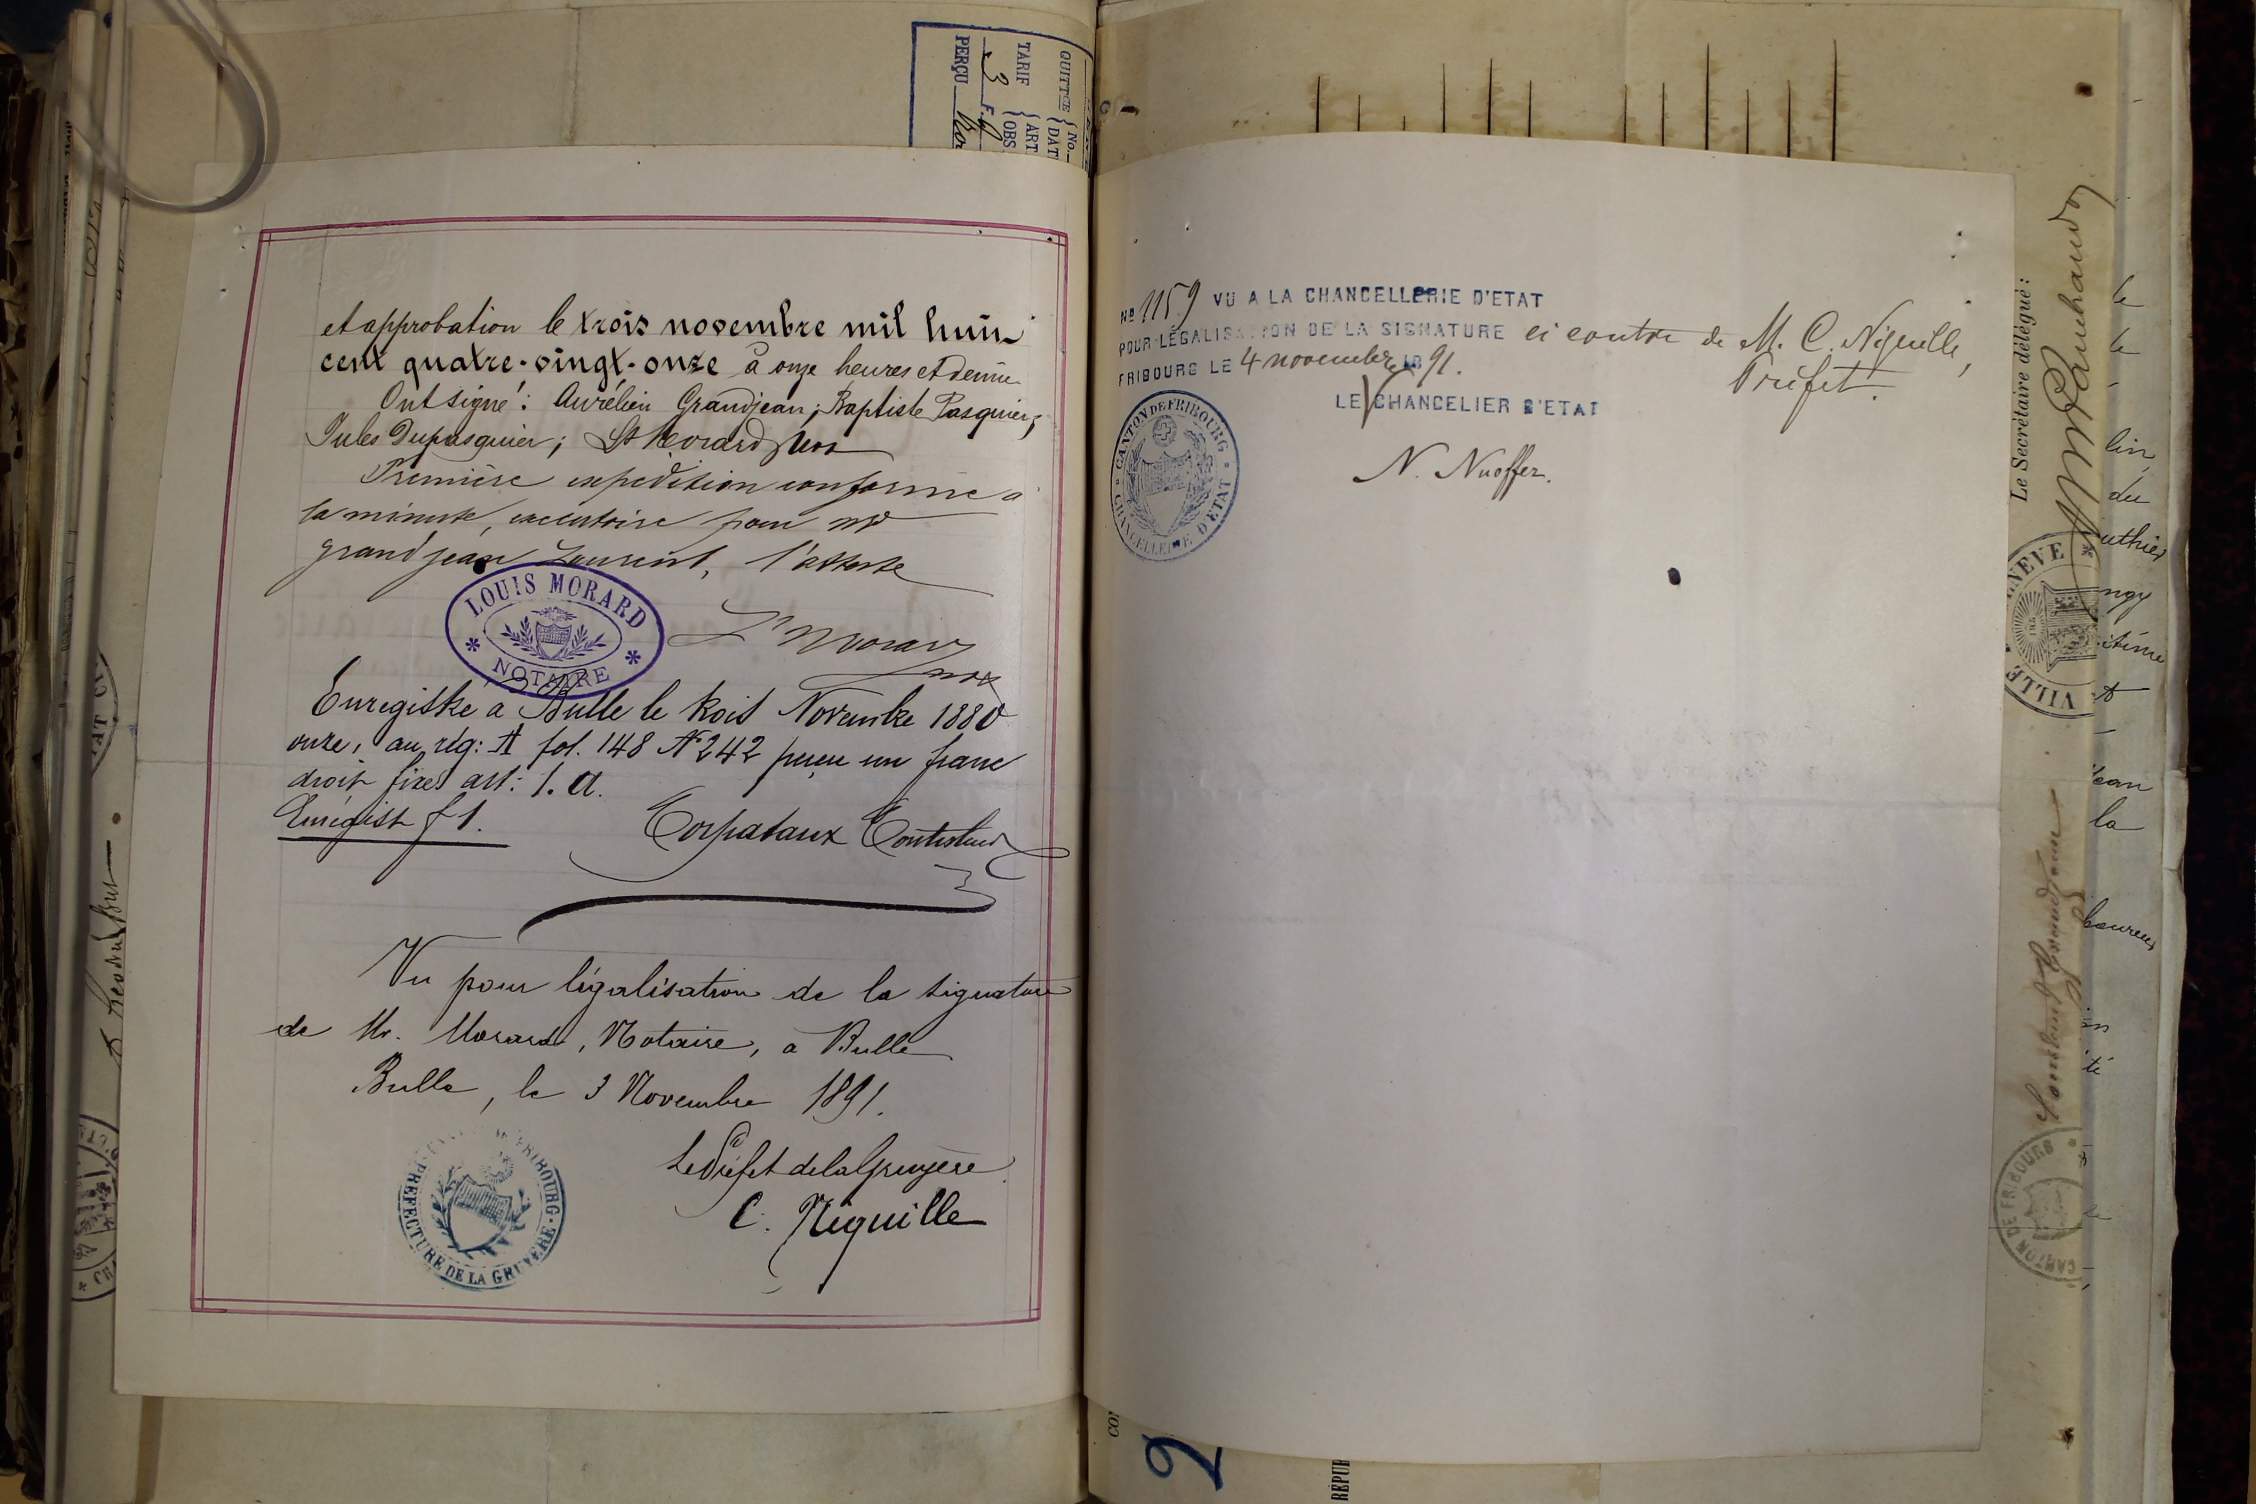 et approbation le trois novembre mil huit
cent quatre-vingt-onze à onze heures et demie
Ont signé: Aurélien Grandjean; Baptiste Pasquier;
Jules Dupasquier; Ls Morard, not
Première expédition conforme à
la minute, exécutoire pour
Grandjean Laurent, l'atteste
LOUIS MORARD
* NOTAIRE *
Ls Morard
not
Enregistré à Bulle le trois Novembre 1880
onze, au rég: A fol. 148 N° 242 perçu un franc
droit fixe art: 1. a.
Enregist f 1.
Corpataux Contrôleur
Vu pour légalisation de la signature
de Mr. Morard, Notaire, à Bulle
Bulle, le 3 Novembre 1891.
Le Préfet de la Gruyère
C. Niquille
FRIBOURG · PREFECTURE DE LA GRUYERE ·
QUITTCE { No.
{ DAT
TARIF { ART
{ OBS
3 F.
PERÇU
No 1159 VU A LA CHANCELLERIE D'ETAT
POUR LÉGALISATION DE LA SIGNATURE ci contre de M. C. Niquille,
Préfet.
FRIBOURG LE 4 novembre 1891.
LE CHANCELIER D'ETAT
N. Nuoffer.
CANTON DE FRIBOURG * CHANCELLERIE D'ETAT *
Le Secrétaire délégué:
VILLE GENEVE
CANTON DE FRIBOURG
le
le
lin
du
uthier
ean
la
té
2
RÉPUB